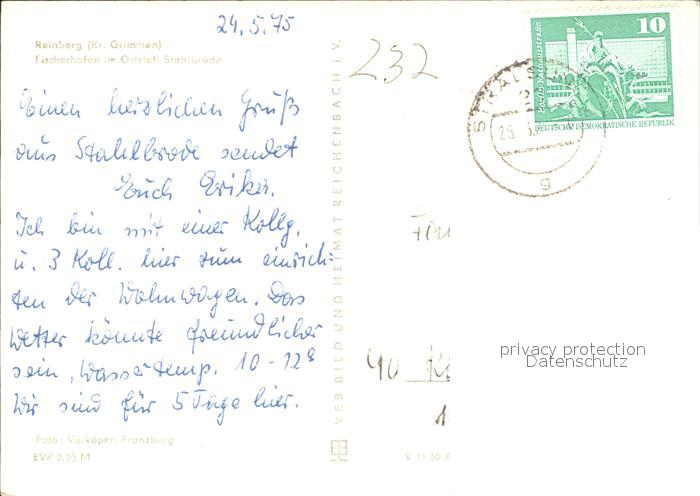 24.5.75
Reinberg (Kr. Grimmen)
Fischerhafen im Ortsteil Stahlbrode
Einen herzlichen Gruß
aus Stahlbrode sendet
Euch Erika.
Ich bin mit einer Kollg.
u. 3 Koll. hier zum einrich-
ten der Wohnwagen. Das
Wetter könnte freundlicher
sein, Wassertemp. 10-12°
Wir sind für 5 Tage hier.
Foto: Vorköper, Franzburg
EVP 0,25 M
VEB BILD UND HEIMAT REICHENBACH i. V.
V 11 50 A
232
10
Berlin, Rathausstraße
DEUTSCHE DEMOKRATISCHE REPUBLIK
STRAL
g
Fam
40 K
1
privacy protection
Datenschutz